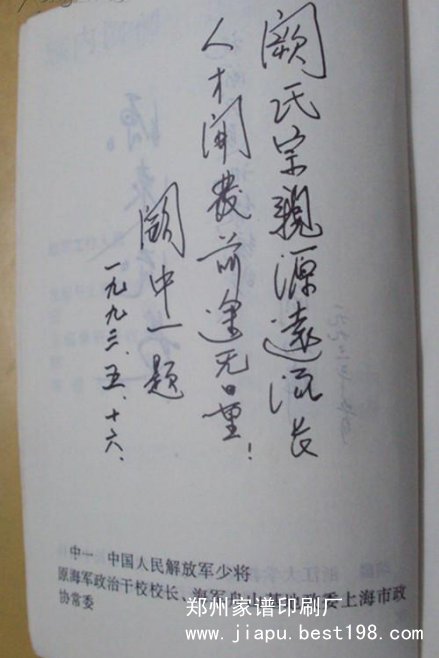 阙氏宗親源遠流长
人才開發前途无量!
阙中一题
一九九三.五.十六.
中一 中国人民解放军少将
原海军政治干校校长、海军舟山基地政委上海市政
协常委
郑州家谱印刷厂
www.jiapu.best198.com